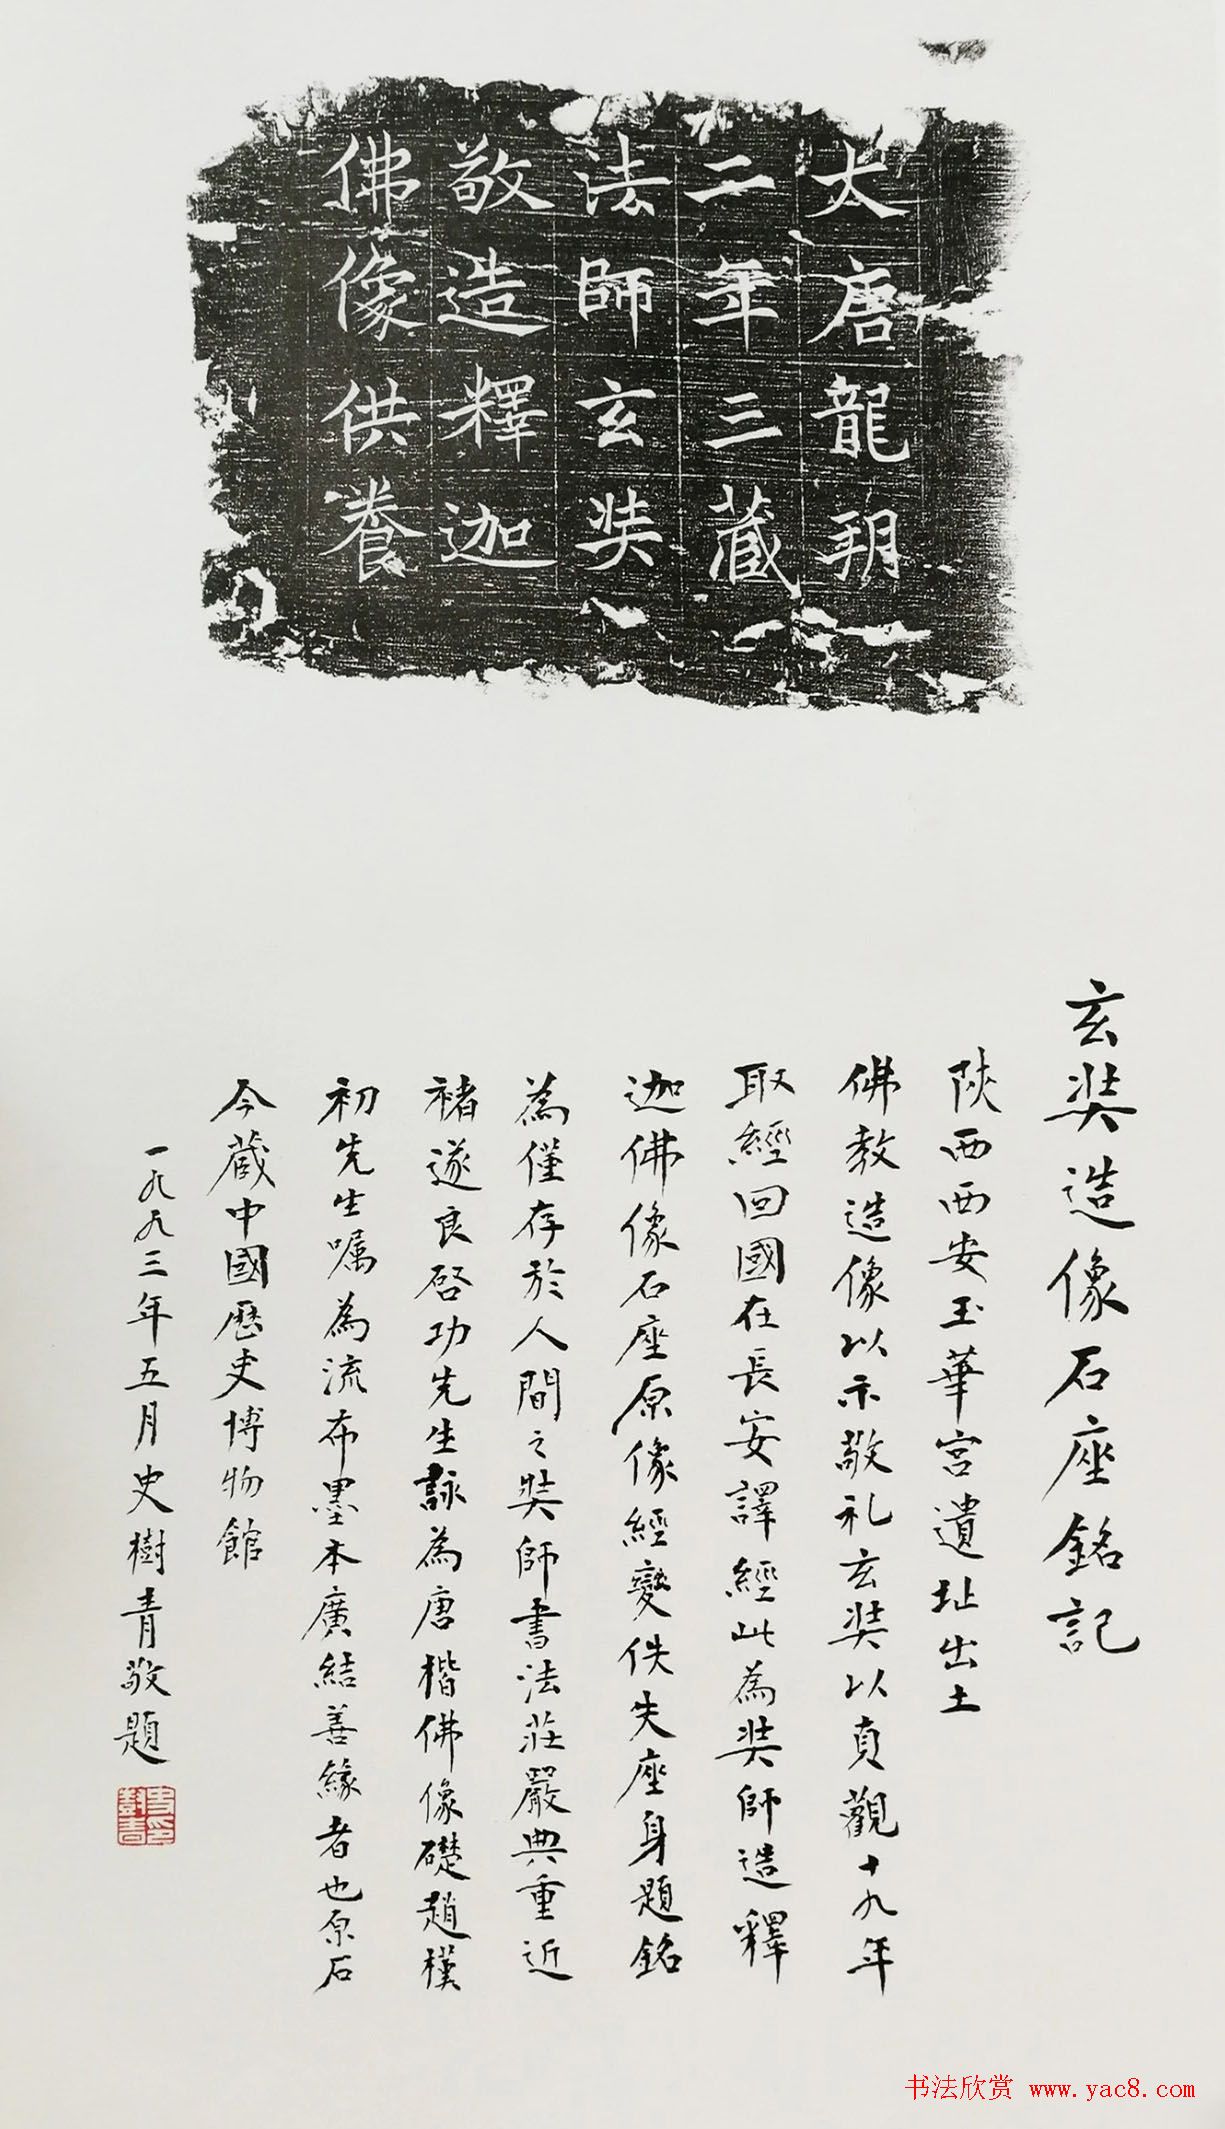 大唐龍朔
二年三藏
法師玄奘
敬造釋迦
佛像供養
玄奘造像石座銘記
陝西西安玉華宮遺址出土
佛教造像以示敬礼玄奘以貞觀十九年
取經回國在長安譯經此為奘師造釋
迦佛像石座原像經變佚失座身題銘
為僅存於人間之奘師書法莊嚴典重近
褚遂良啓功先生詠為唐楷佛像礎趙樸
初先生囑為流布墨本廣結善緣者也原石
今蔵中國歷史博物館
一九九三年五月史樹青敬題
史印樹青
书法欣赏 www.yac8.com